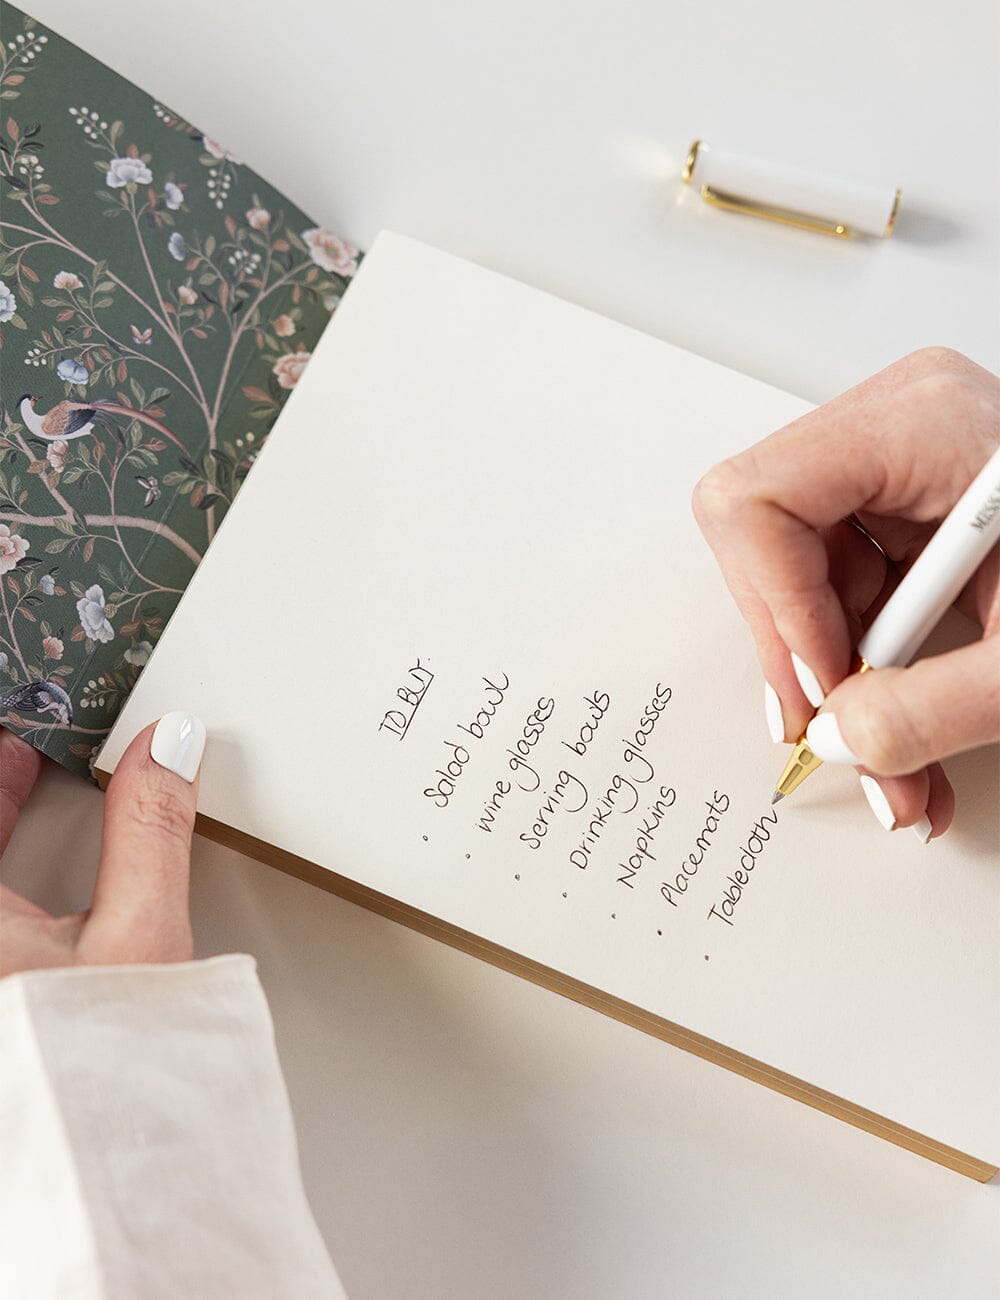 TO BUY.
• Salad bowl
• wine glasses
• Serving bowls
• Drinking glasses
• Napkins
• Placemats
• Tablecloth
MISS